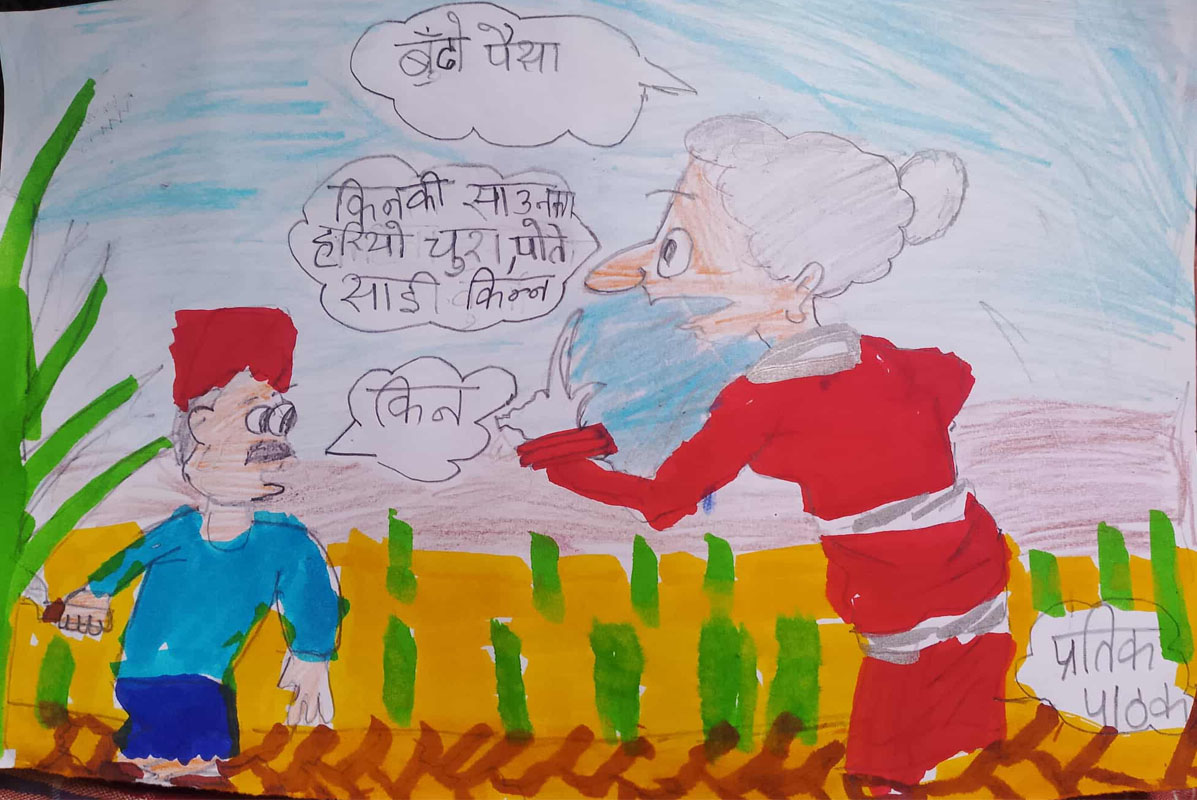 बुँढो पैसा
किनकी साउनका
हरियो चुरा,पोते
साडी किन्न
किन
प्रतिक
पाठक